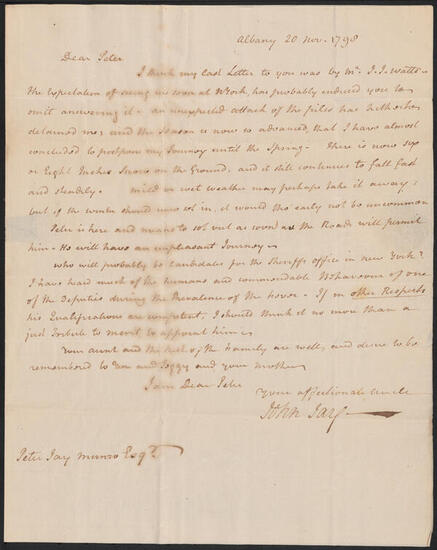 Albany 20 Nov. 1798
Dear Peter
I think my last Letter to you was by Mr. J. J. Watts—
The Expectation of seeing me soon at NYork, has probably induced you to
omit answering it— an unexpected attack of the piles has hitherto
detained me; and the Season is now so advanced, that I have almost
concluded to postpone my Journey until the Spring— There is now six
or Eight Inches Snow on the Ground, and it still continues to fall fast
and steadily. mild or wet weather may perhaps take it away;
but if the winter should now set in, it would tho early not be uncommon
Peter is here and means to set out as soon as the Roads will permit
him— He will have an unpleasant Journey—
who will probably be Candidates for the Sheriffs office in new York?
I have heard much of the humane and commendable Behaviour of one
of the Deputies during the Prevalence of the fever— If in other Respects
his Qualifications are competent, I should think it no more than a
just Tribute to merit to appoint him—
Your aunt and the rest of the Family are well, and desire to be
remembered to You and Peggy and your mother
I am Dear Peter
Your affectionate Uncle
John Jay
Peter Jay Munro Esqr.